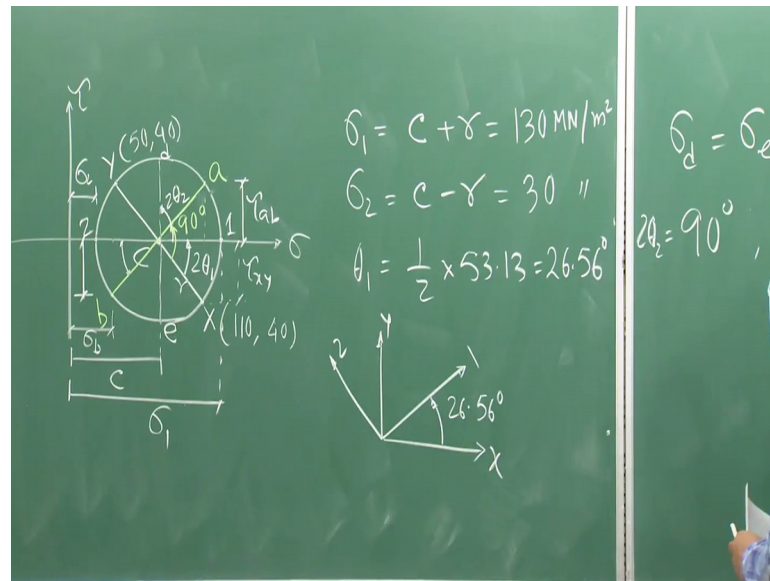 τ
Y(50,40)
d
a
σ₂
2θ₂
90°
τab
2
1
σ
C
2θ₁
r
τxy
b
e
X(110, 40)
σb
C
σ₁
σ₁ = C + r = 130 MN/m²
σ₂ = C - r = 30 〃
θ₁ = 1/2 × 53.13 = 26.56°
2
Y
1
26.56°
X
σd = σe
2θ₂ = 90° ,